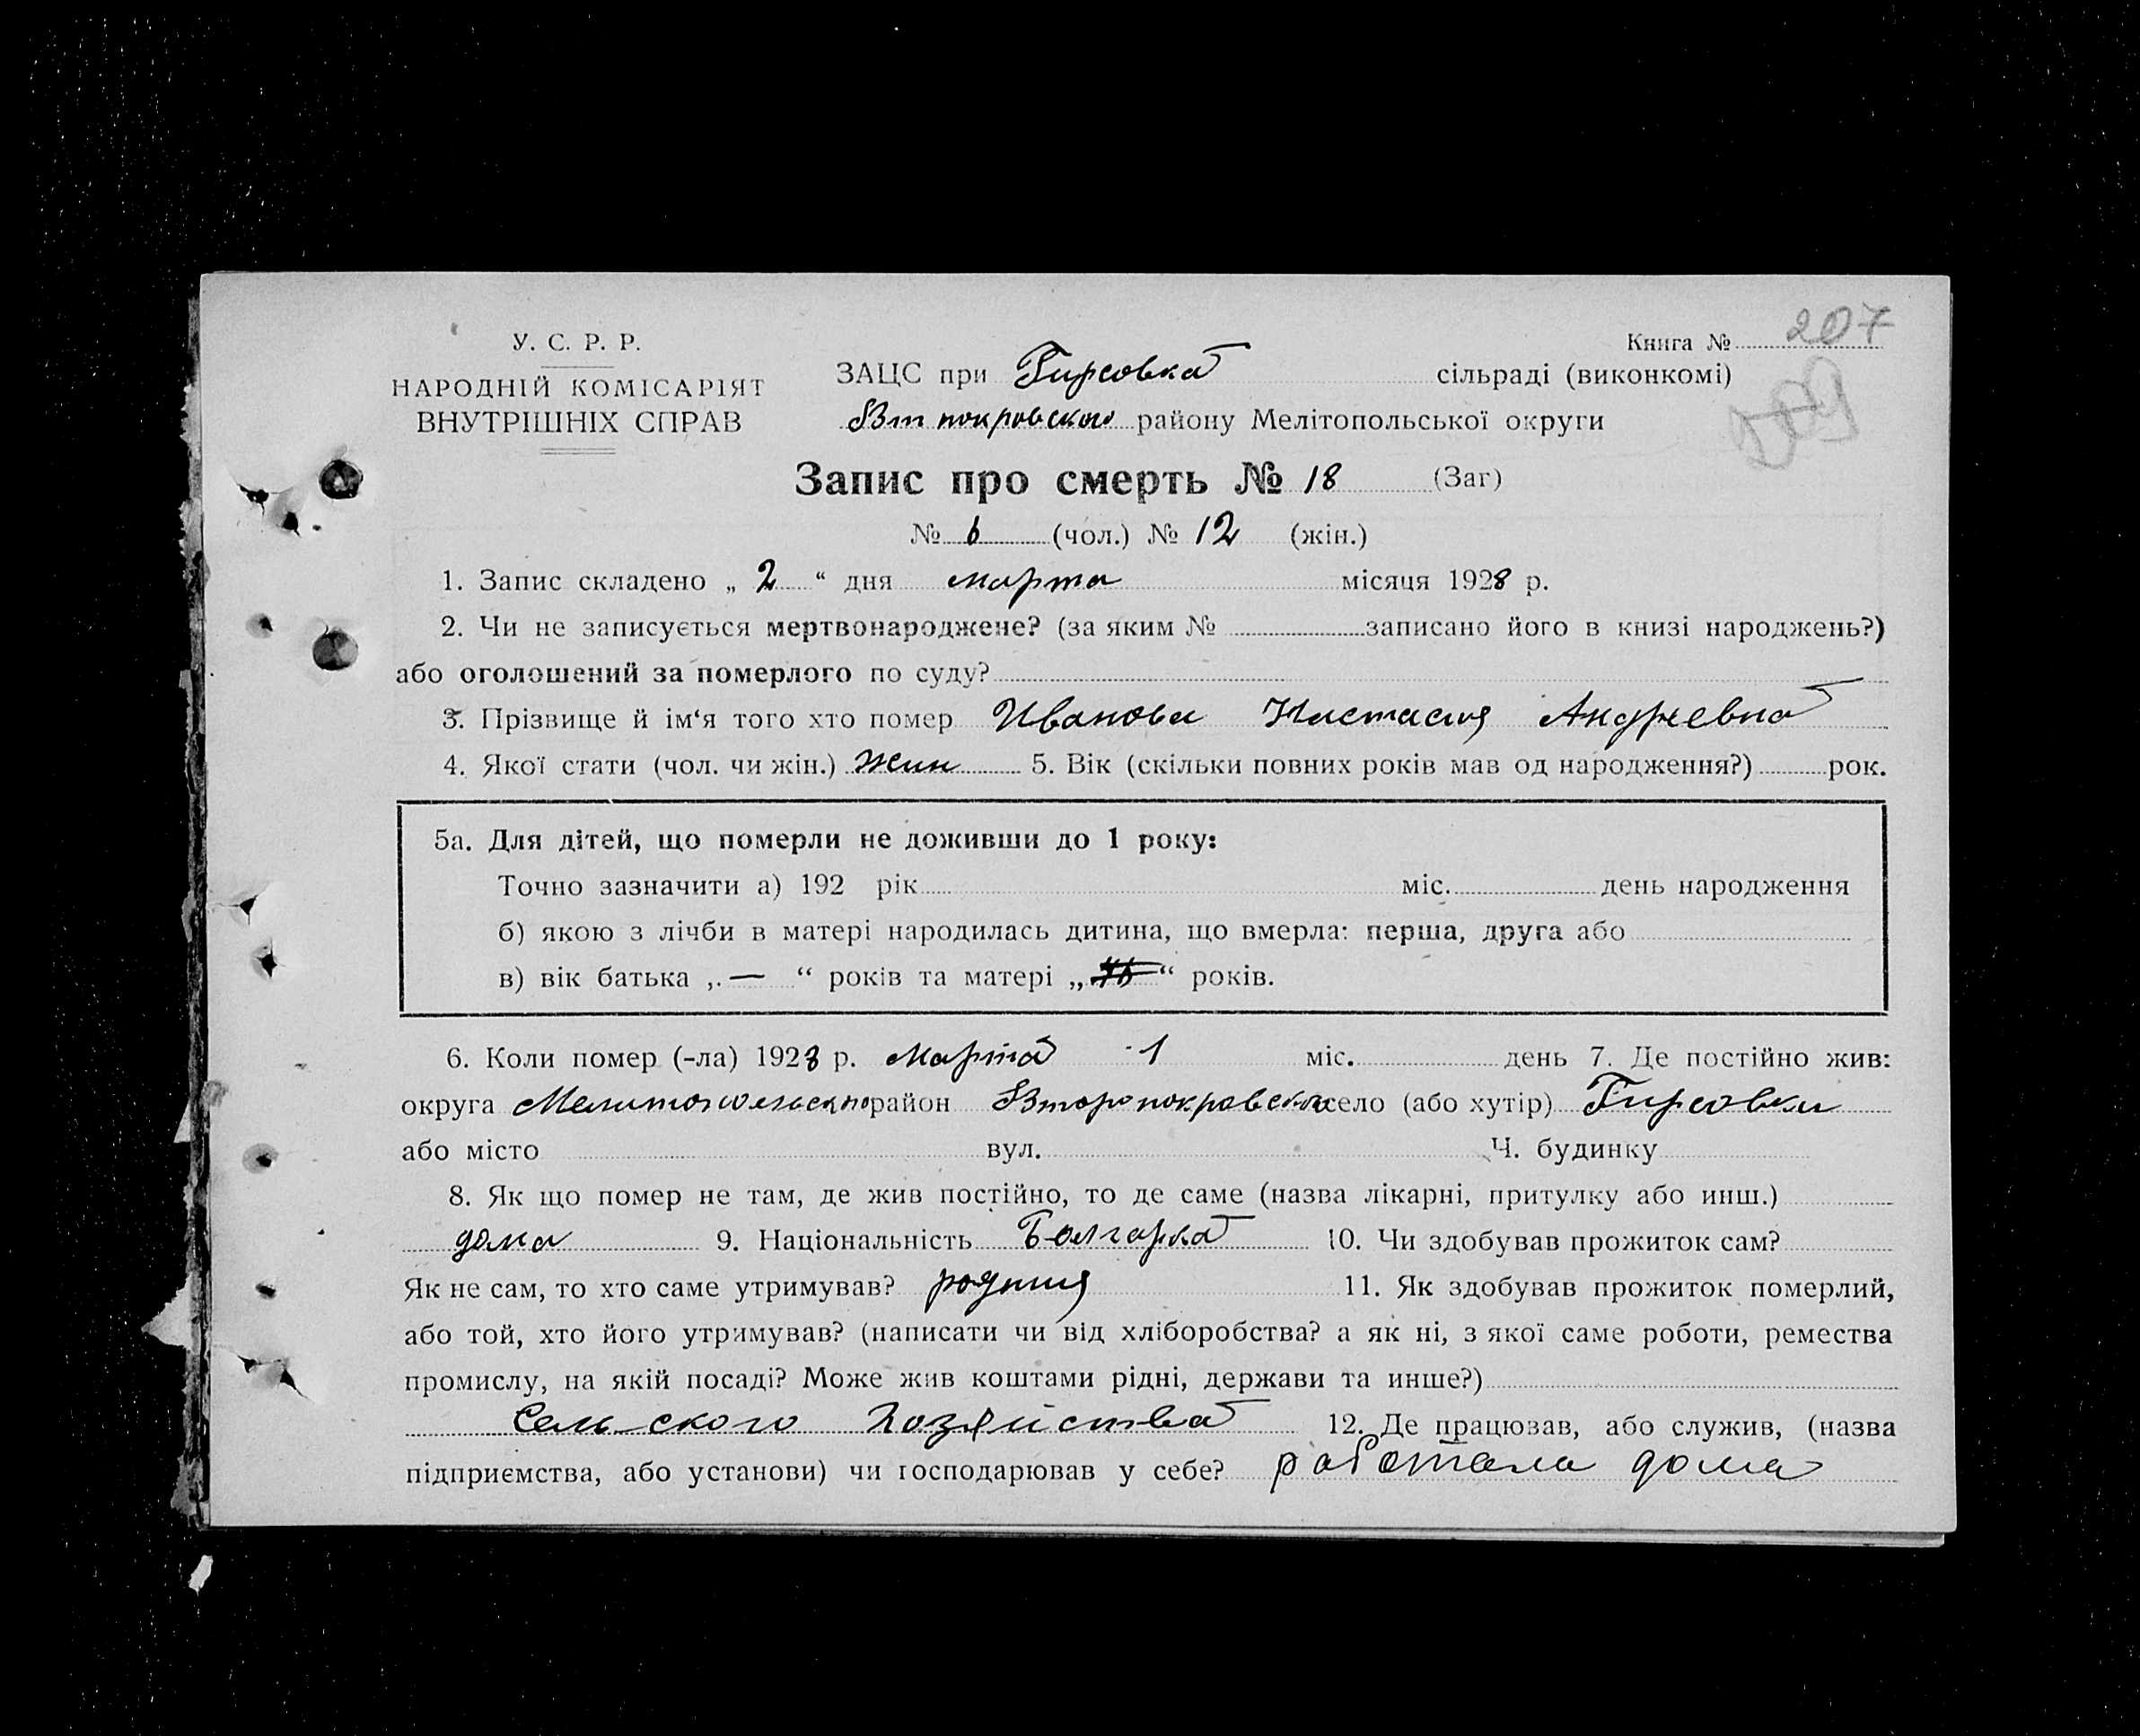 У. С. Р. Р.
НАРОДНІЙ КОМІСАРІЯТ
ВНУТРІШНІХ СПРАВ
Книга № 207
ЗАЦС при Гирсовка сільраді (виконкомі)
Вт покровского району Мелітопольської округи
Запис про смерть № 18 (Заг)
№ 6 (чол.) № 12 (жін.)
1. Запис складено „ 2 “ дня марта місяця 1928 р.
2. Чи не записується мертвонароджене? (за яким № записано його в книзі народжень?)
або оголошений за померлого по суду?
3. Прізвище й ім‘я того хто помер Иванова Настасия Андреевна
4. Якої стати (чол. чи жін.) Жин 5. Вік (скільки повних років мав од народження?) рок.
5а. Для дітей, що померли не доживши до 1 року:
Точно зазначити а) 192 рік міс. день народження
б) якою з лічби в матері народилась дитина, що вмерла: перша, друга або
в) вік батька „ — “ років та матері „ “ років.
6. Коли помер (-ла) 1928 р. Марта 1 міс. день 7. Де постійно жив:
округа район Второпокровского село (або хутір) Гирсовки
або місто вул. Ч. будинку
8. Як що помер не там, де жив постійно, то де саме (назва лікарні, притулку або инш.)
дома 9. Національність Болгарка 10. Чи здобував прожиток сам?
Як не сам, то хто саме утримував? родния 11. Як здобував прожиток померлий,
або той, хто його утримував? (написати чи від хліборобства? а як ні, з якої саме роботи, ремества
промислу, на якій посаді? Може жив коштами рідні, держави та инше?)
Сельского хозяйства 12. Де працював, або служив, (назва
підприємства, або установи) чи господарював у себе? работала дома